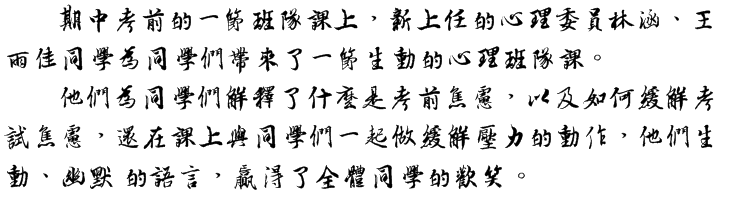 期中考前的一節班隊課上，新上任的心理委員林涵、王
雨佳同學為同學們帶來了一節生動的心理班隊課。
他們為同學們解釋了什麼是考前焦慮，以及如何緩解考
試焦慮，還在課上與同學們一起做緩解壓力的動作，他們生
動、幽默 的語言，贏得了全體同學的歡笑。